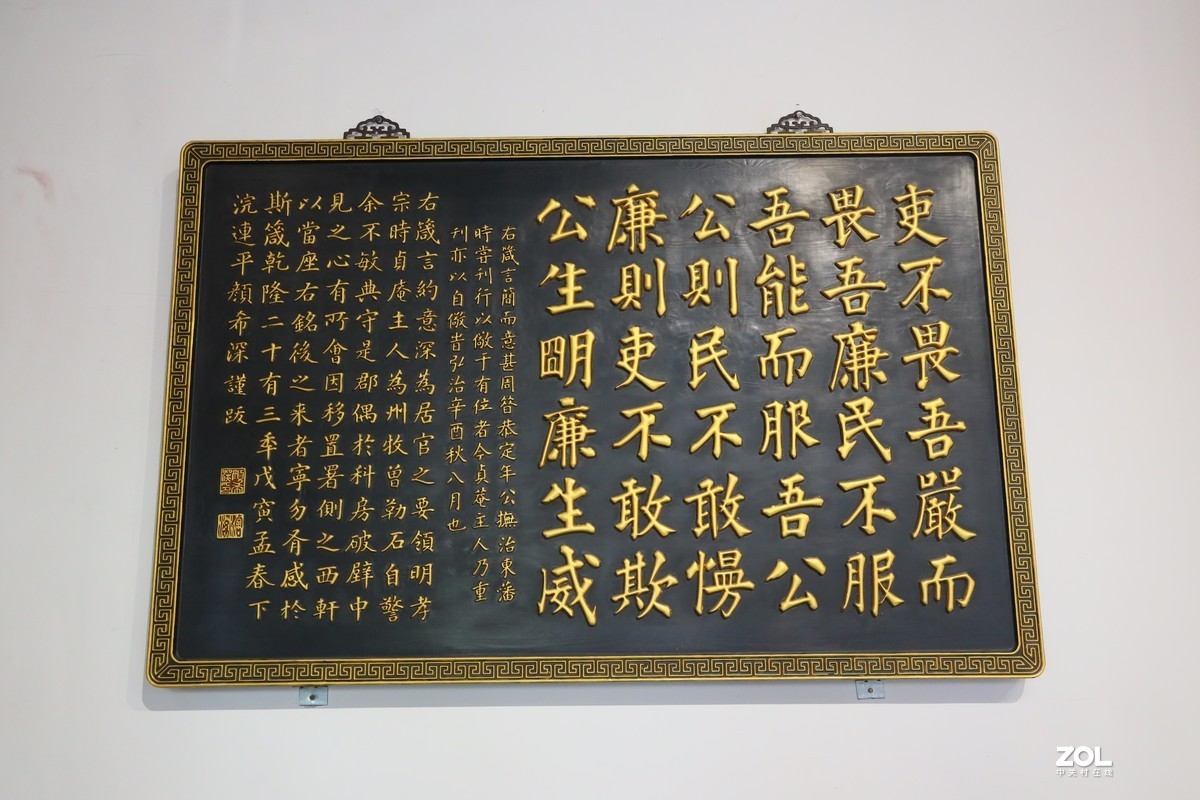 吏不畏吾嚴而
畏吾廉民不服
吾能而服吾公
公則民不敢慢
廉則吏不敢欺
公生明廉生威
右箴言簡而意甚周昝恭定年公撫治東藩
時嘗刊行以儆于有位者今貞菴主人乃重
刊亦以自儆旹弘治辛酉秋八月也
右箴言約意深為居官之要領明孝
宗時貞庵主人為州牧曾勒石自警
余不敏典守是郡偶於科房破壁中
見之心有所會因移置署側之西軒
以當座右銘後之来者寧勿有感於
斯箴乾隆二十有三年戊寅孟春下
浣連平顏希深謹跋
ZOL
中关村在线